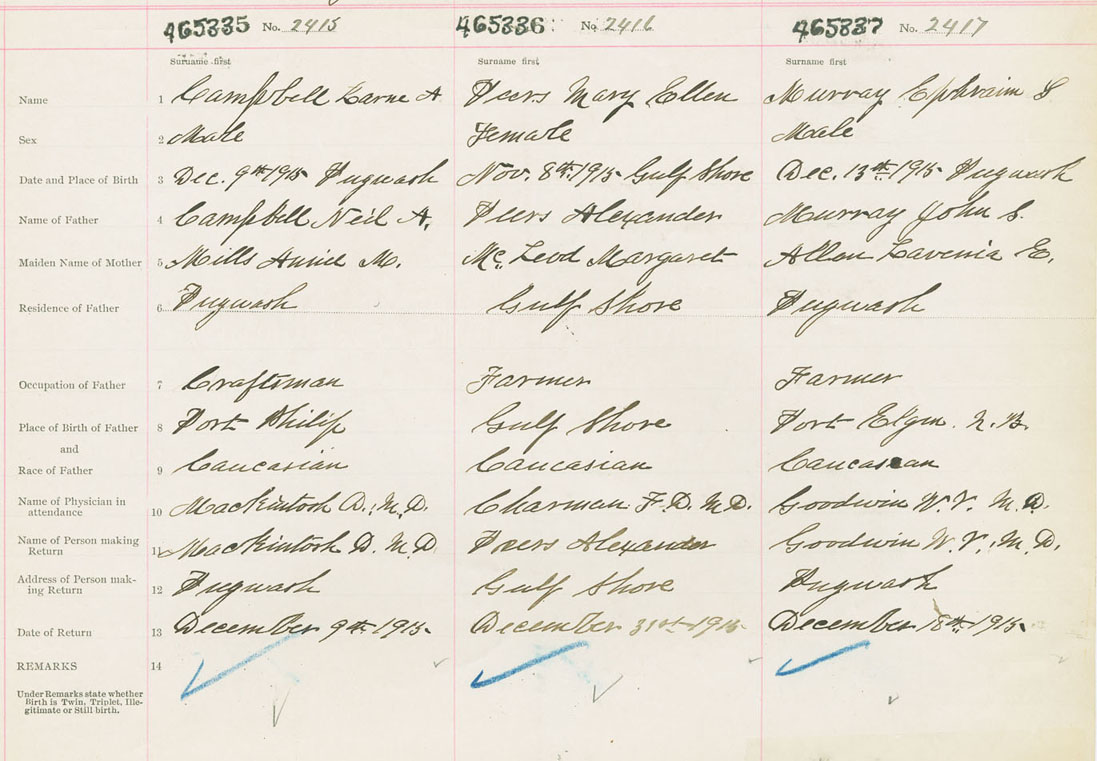 465335 No. 2415 465336 No. 2416 465337 No. 2417
Surname first Surname first Surname first
Name 1 Campbell Larne A Peers Mary Ellen Murray Ephraim S
Sex 2 Male Female Male
Date and Place of Birth 3 Dec. 9th 1915 Pugwash Nov. 8th 1915 Gulf Shore Dec. 13th 1915 Pugwash
Name of Father 4 Campbell Neil A. Peers Alexander Murray John S.
Maiden Name of Mother 5 Mills Annie M. McLeod Margaret Allen Lavenia E.
Residence of Father 6 Pugwash Gulf Shore Pugwash
Occupation of Father 7 Craftsman Farmer Farmer
Place of Birth of Father 8 Port Philip Gulf Shore Port Elgin. N.B.
and
Race of Father 9 Caucasian Caucasian Caucasian
Name of Physician in
attendance 10 MacKintosh D., M.D. Charman F.D. M.D. Goodwin W.V. M.D.
Name of Person making
Return 11 MacKintosh D. M.D Peers Alexander Goodwin W.V., M.D.
Address of Person mak-
ing Return 12 Pugwash Gulf Shore Pugwash
Date of Return 13 December 9th 1915 December 31st 1915 December 18th 1915
REMARKS 14
Under Remarks state whether
Birth is Twin, Triplet, Ille-
gitimate or Still birth.